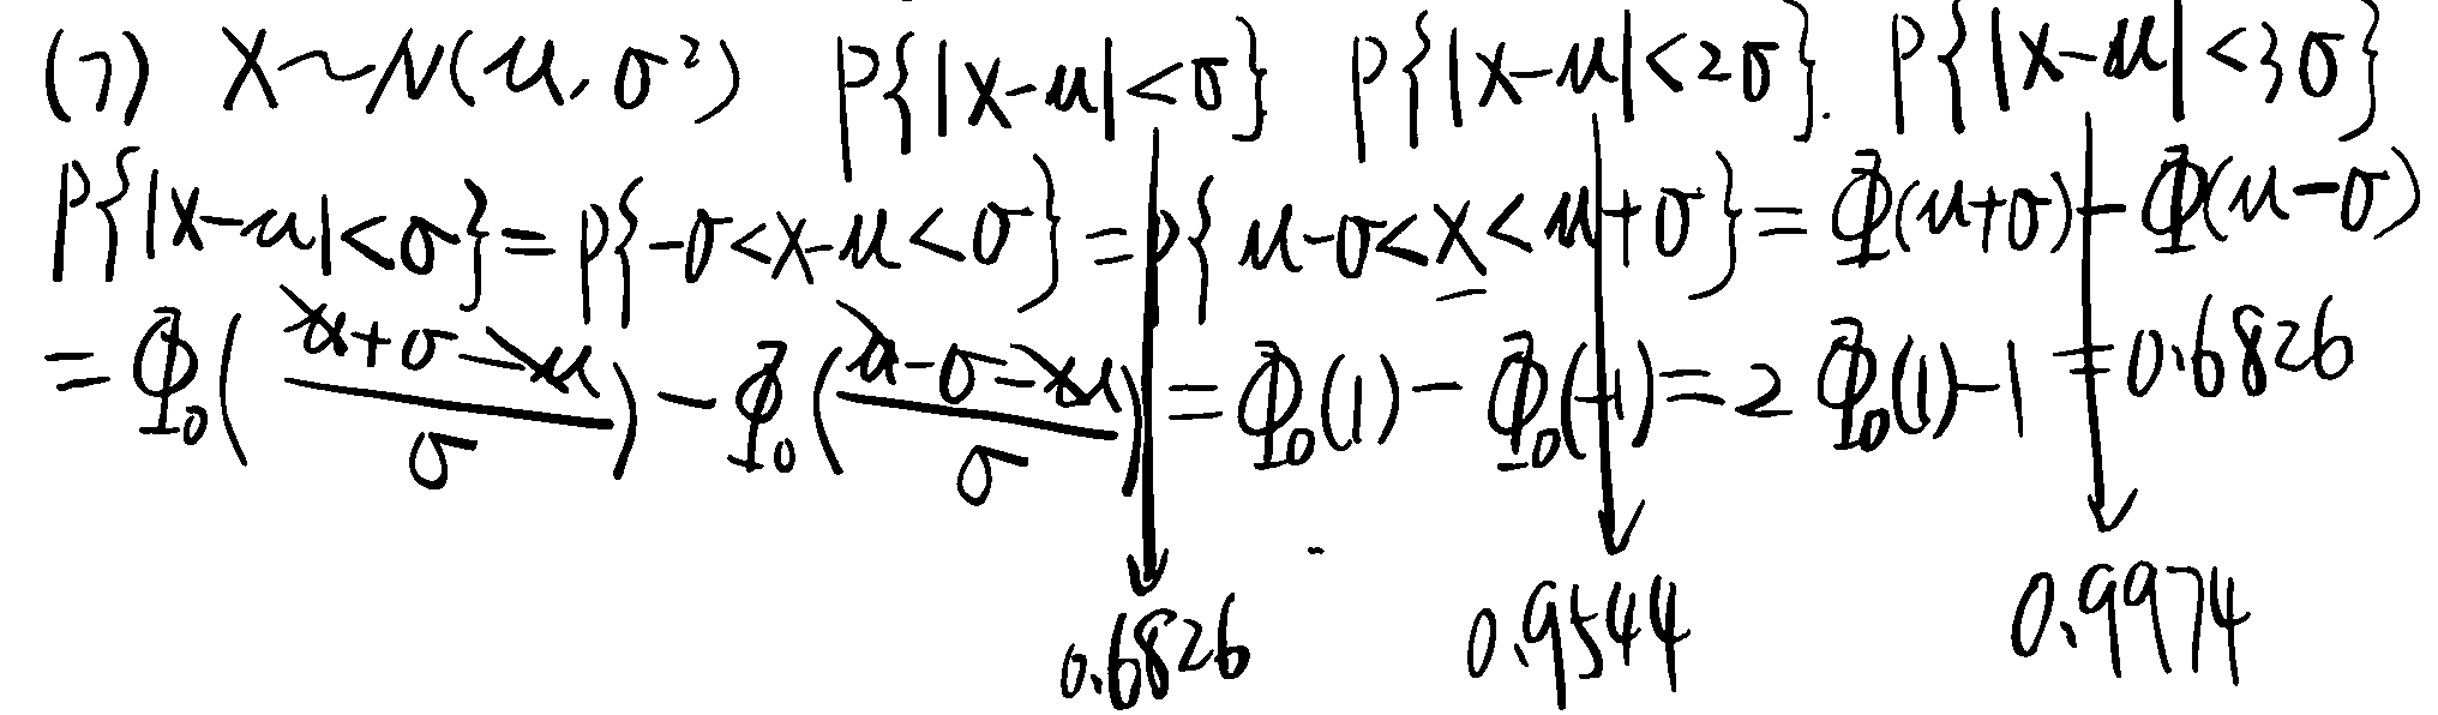 (7) X~N(μ, σ²) P{|X-μ|<σ} P{|X-μ|<2σ}. P{|X-μ|<3σ}
P{|X-μ|<σ}=P{-σ<X-μ<σ}=P{μ-σ<X<μ+σ}=Φ(μ+σ)-Φ(μ-σ)
=Φ₀((μ+σ-μ)/σ)-Φ₀((μ-σ-μ)/σ)=Φ₀(1)-Φ₀(-1)=2Φ₀(1)-1=0.6826
0.6826 0.9544 0.9974